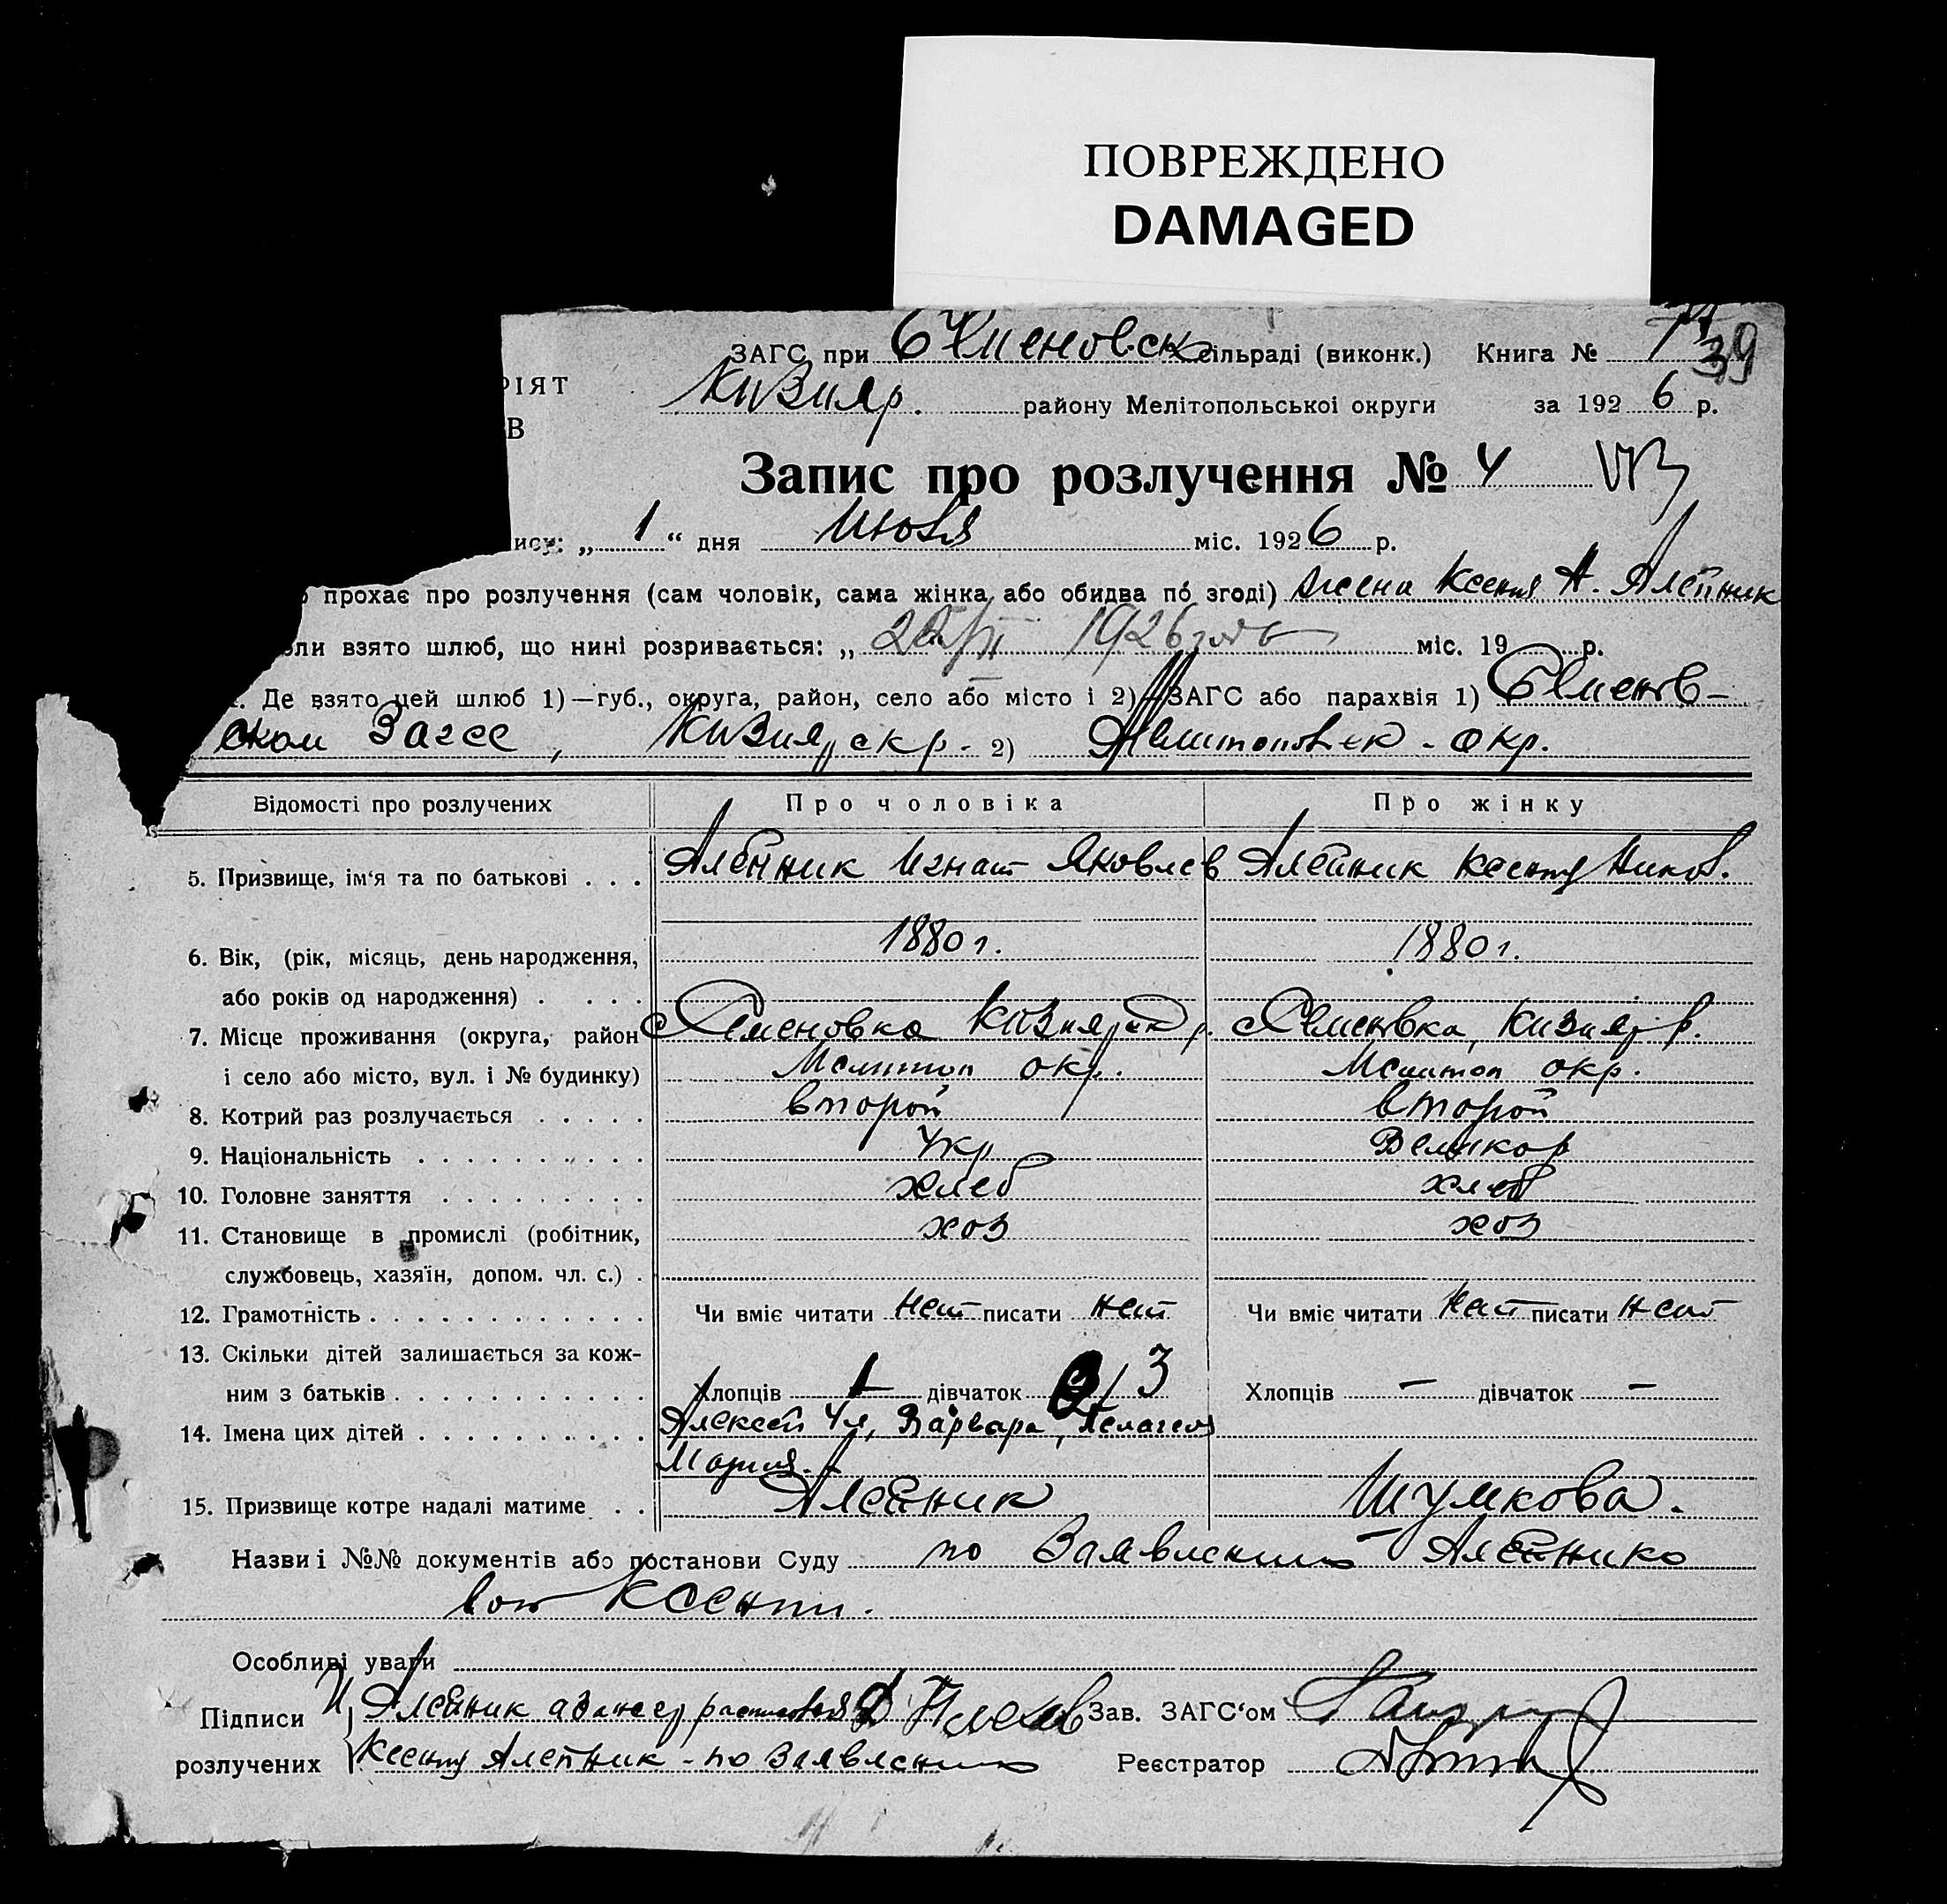 ПОВРЕЖДЕНО
DAMAGED
ЗАГС при Семеновск сільраді (виконк.) Книга № 39
РІЯТ Кизияр. району Мелітопольської округи за 1926 р.
В
Запис про розлучення № 4
ису: „ 1 “ дня Июля міс. 1926 р.
прохає про розлучення (сам чоловік, сама жінка або обидва по згоді) жена Ксения А. Алейник
оли взято шлюб, що нині розривається: „ 1926 года міс. 19 р.
Де взято цей шлюб 1)—губ., округа, район, село або місто і 2)—ЗАГС або парахвія 1) Семенов-
ском Загсе, Кизияр 2) Мелитоповск - окр.
Відомості про розлучених Про чоловіка Про жінку
5. Призвище, ім‘я та по батькові . . . Алейник Игнат Яковлев Алейник Ксения
6. Вік, (рік, місяць, день народження, 1880 г. 1880 г.
або років од народження) . . . .
7. Місце проживання (округа, район с Семеновка Кизиярск р. с Семеновка, Кизияр р.
і село або місто, вул. і № будинку) Мелитоп окр. Мелитоп окр.
8. Котрий раз розлучається . . . . . второй второй
9. Національність . . . . . . . . . . Укр Великор
10. Головне заняття . . . . . . . . . хлеб хлеб
11. Становище в промислі (робітник, хоз хоз
службовець, хазяїн, допом. чл. с.) .
12. Грамотність . . . . . . . . . . . . Чи вміє читати нет писати нет Чи вміє читати нет писати нет
13. Скільки дітей залишається за кож-
ним з батьків . . . . . . . . . . . Хлопців 1 дівчаток 3 Хлопців — дівчаток —
14. Імена цих дітей . . . . . . . . . . Алексей Варвара, Пелагея
Мария.
15. Призвище котре надалі матиме . . Алейник Шумкова.
Назви і №№ документів або постанови Суду по Заявлению Алейнико
вой Ксении.
Особливі уваги
Підписи Алейник а за него расписался Зав. ЗАГС‘ом
розлучених Ксения Алейник - по заявлению Реєстратор